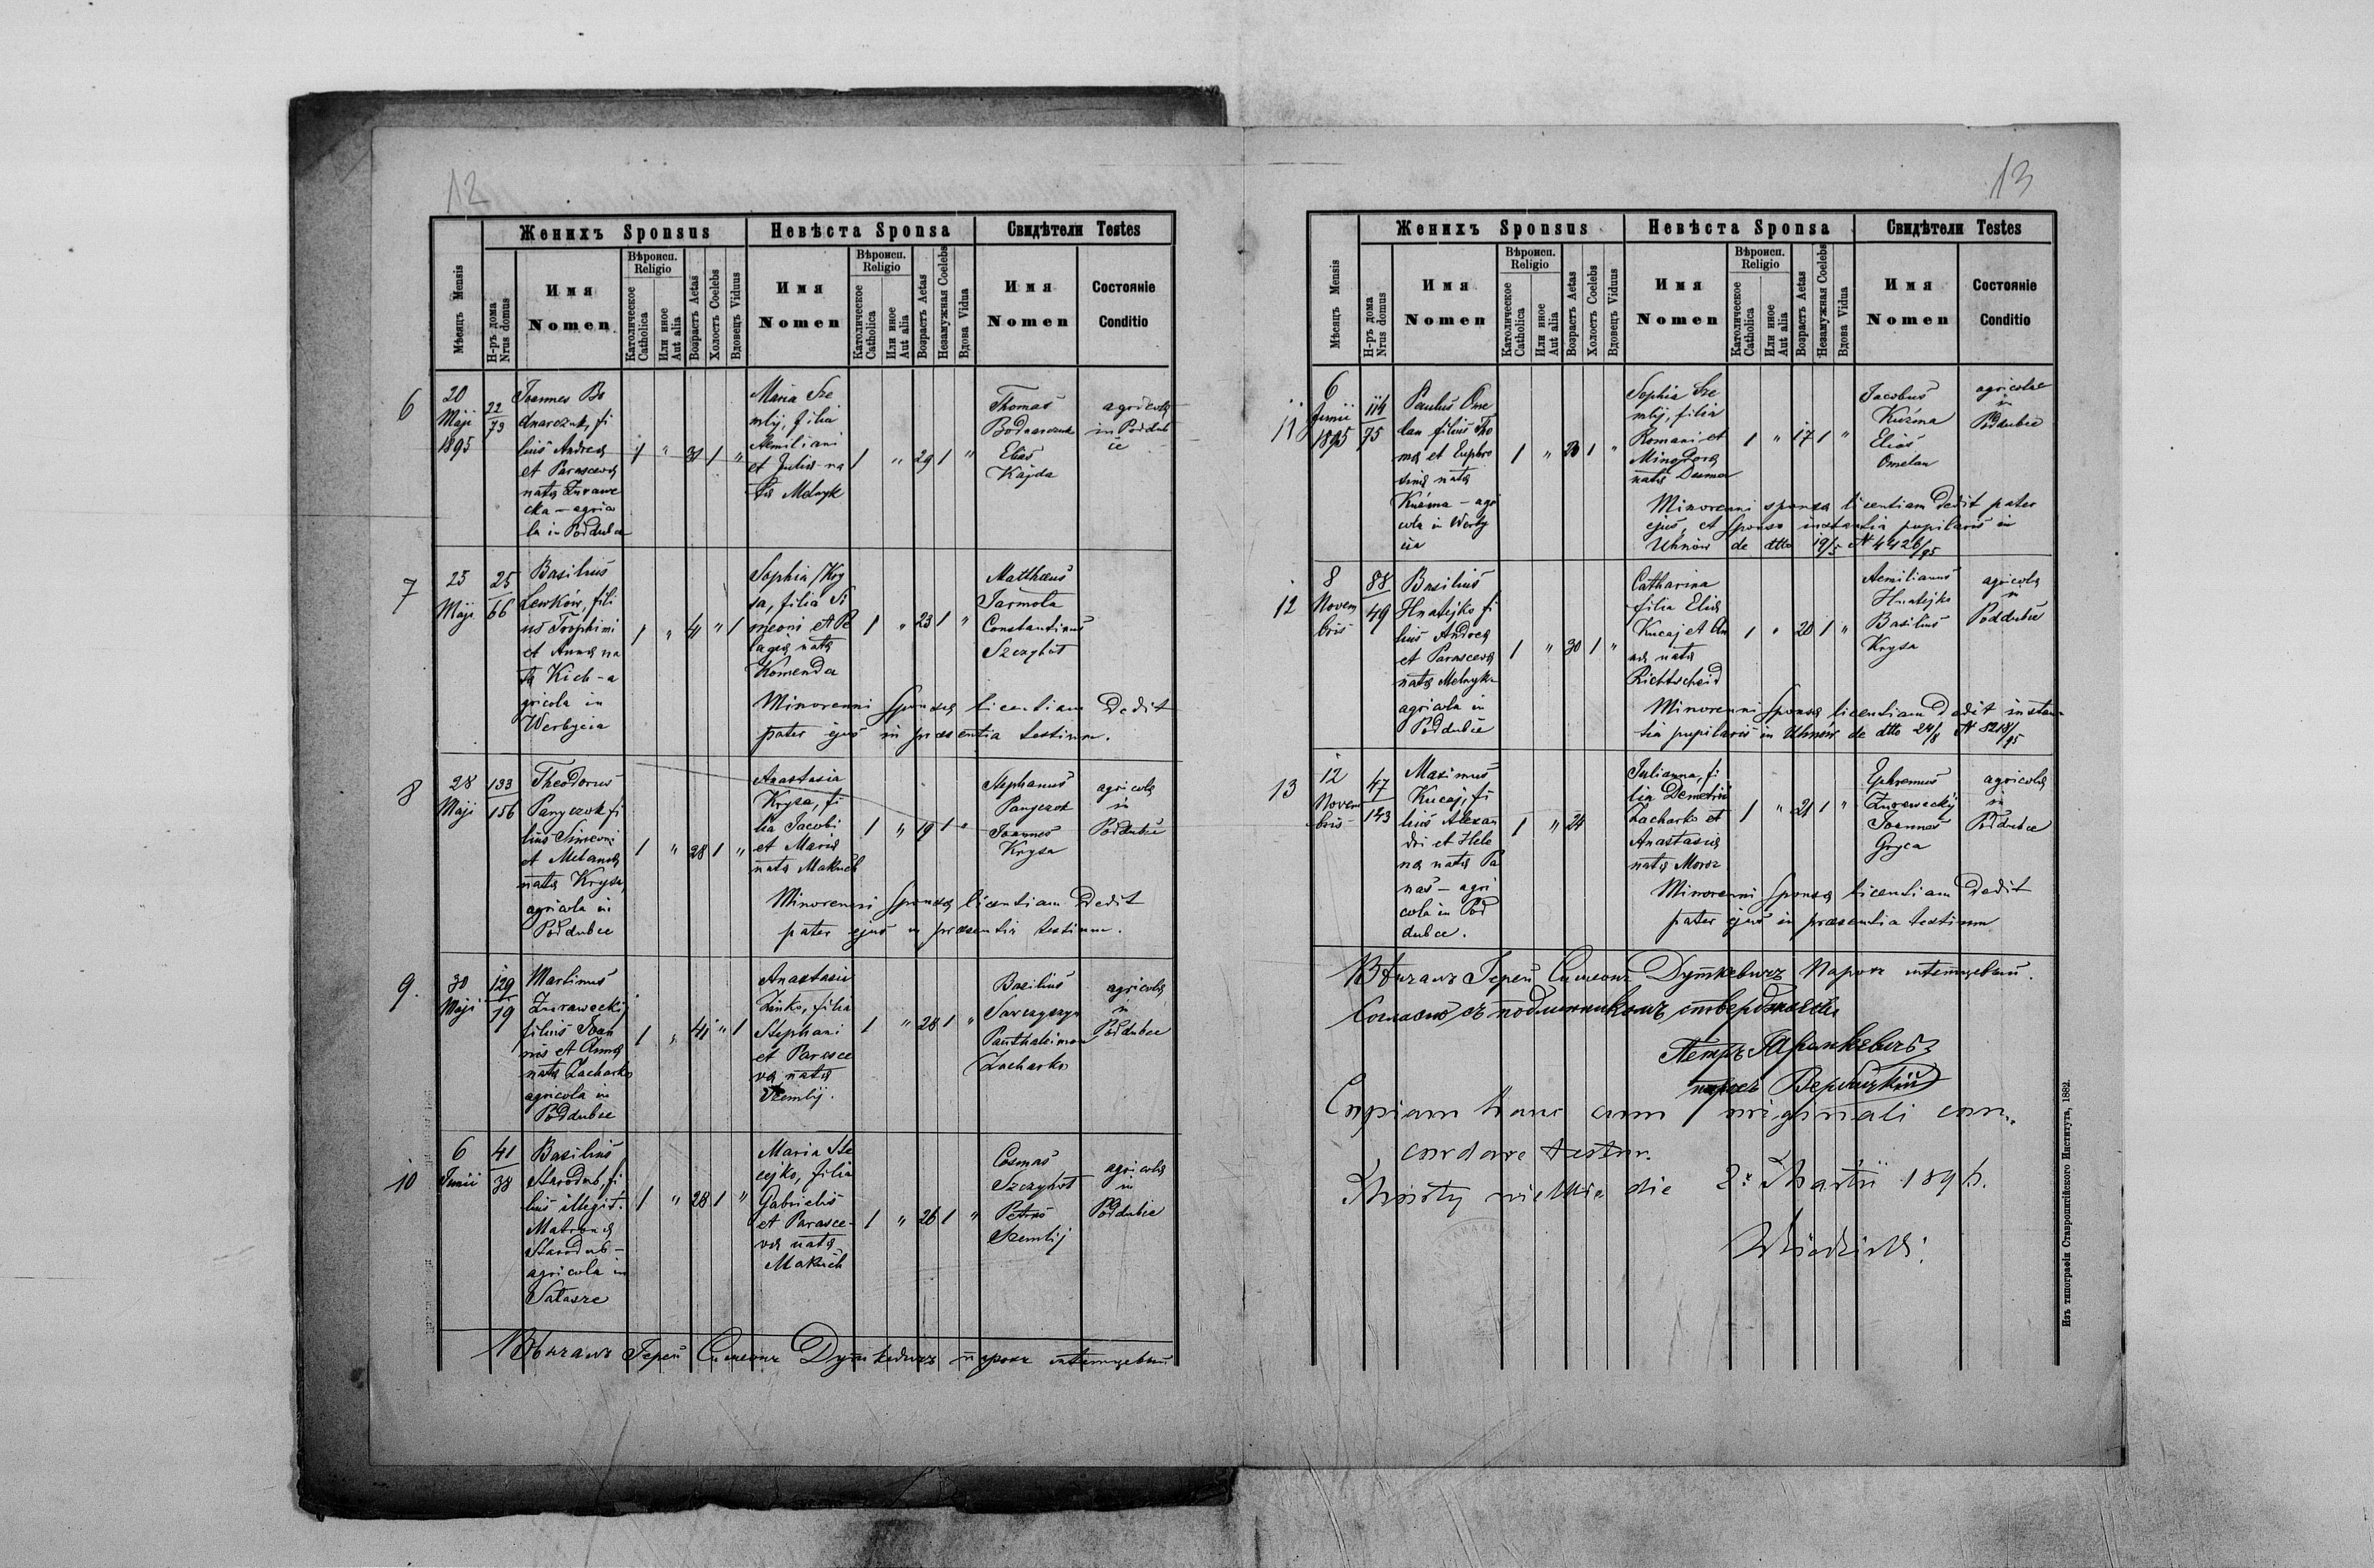 12
Женихъ Sponsus
Невѣста Sponsa
Свидѣтели Testes
Мѣсяцъ Mensis
Н-ръ дома
Nrus domus
Имя
Nomen
Вѣроисп.
Religio
Католическое
Catholica
Или иное
Aut alia
Возрастъ Aetas
Холостъ Coelebs
Вдовецъ Viduus
Имя
Nomen
Вѣроисп.
Religio
Католическое
Catholica
Или иное
Aut alia
Возрастъ Aetas
Незамужная Coelebs
Вдова Vidua
Имя
Nomen
Состояніе
Conditio
6
20
Maji
1895
22
73
Joannes Bo
dnarczuk, fi
lius Andreæ
et Parascevæ
natæ Zurawe
cka – agrico
la in Poddubce
1 " 31 1 "
Maria Sze
mlij, filia
Aemiliani
et Juliæ na
tæ Melnyk
1 " 29 1 "
Thomas
Bodnarczuk
Elias
Kajda
agricolæ
in Poddub
ce
7
25
Maji
25
66
Basilius
Lewków, fili
us Trophimi
et Annæ na
tæ Kich – a
gricola in
Werbycia
1 " 41 " 1
Sophia Kry
sa, filia Si
meoni et Pe
lagiæ natæ
Komenda
1 " 23 1 "
Matthæus
Jarmola
Constantinus
Szczyhot
Minorenni sponsæ licentiam dedit
pater ejus in præsentia testium.
8
28
Maji
133
156
Theodorus
Panyczok fi
lius Simeoni
et Melaniæ
natæ Krysa,
agricola in
Poddubce
1 " 28 1 "
Anastasia
Krysa, fi
lia Jacobi
et Mariæ
natæ Makuch
1 " 19 1 "
Stephanus
Panyczok
Joannes
Krysa
agricolæ
in
Poddubce
Minorenni sponsæ licentiam dedit
pater ejus in præsentia testium.
9.
30
Maji
129
19
Martinus
Zurawecki
filius Joan
nis et Annæ
natæ Zacharko
agricola in
Poddubce
1 " 41 " 1
Anastasia
Zinko, filia
Stephani
et Parasce
væ natæ
Szemlij.
1 " 28 1 "
Basilius
Panthaleimon
Zacharko
agricolæ
in
Poddubce
10
6
Junii
41
38
Basilius
Starodub, fi
lius illegit.
Matronæ
Starodub –
agricola in
Satasze
1 " 28 1 "
Maria Ste
cejko, filia
Gabrielis
et Parasce-
væ natæ
Makuch
1 " 26 1 "
Cosmas
Szczyhot
Petrus
Szemlij
agricolæ
in
Poddubce
Вѣнчалъ Іерей Симеонъ Дуткевичъ парохъ мѣстцевый
13
Женихъ Sponsus
Невѣста Sponsa
Свидѣтели Testes
Мѣсяцъ Mensis
Н-ръ дома
Nrus domus
Имя
Nomen
Вѣроисп.
Religio
Католическое
Catholica
Или иное
Aut alia
Возрастъ Aetas
Холостъ Coelebs
Вдовецъ Viduus
Имя
Nomen
Вѣроисп.
Religio
Католическое
Catholica
Или иное
Aut alia
Возрастъ Aetas
Незамужная Coelebs
Вдова Vidua
Имя
Nomen
Состояніе
Conditio
11
6
Junii
1895
114
75
Paulus Ome
lan filius Tho
mæ et Euphro
sinæ natæ
Kuźma – agri
cola in Werby
cia
1 " 23 1 "
Sophia Sze
mlij, filia
Romani et
Minodoræ
natæ Duma
1 " 17 1 "
Jacobus
Kuźma
Elias
Omelan
agricolæ
in
Poddubce
Minorenni sponsæ licentiam dedit pater
ejus, et sponso instantia pupilaris in
Uhnów de dtto 19/5 N 4426/95
12
8
Novem
bris
88
49
Basilius
Hnatejko fi
lius Andreæ
et Parascevæ
natæ Melnyk
agricola in
Poddubce
1 " 30 1 "
Catharina
filia Eliæ
Kucaj et An
næ natæ
Richtscheid
1 " 20 1 "
Aemilianus
Hnatejko
Basilius
Krysa
agricolæ
in
Poddubce
Minorenni sponsæ licentiam dedit instan-
tia pupilaris in Uhnów de dtto 24/8 N 8218/95
13
12
Novem
bris
47
143
Maximus
Kucaj, fi
lius Alexan
dri et Hele
næ natæ Pa
nas – agri
cola in Pod
dubce.
1 " 24
Julianna, fi
lia Demetrii
Zacharko et
Anastasiæ
natæ Moroz
1 " 21 1 "
Ephremus
Zurawecky
Joannes
Gryca
agricolæ
in
Poddubce
Minorenni sponsæ licentiam dedit
pater ejus in præsentia testium
Вѣнчалъ Іерей Симеонъ Дуткевичъ Парохъ мѣстцевый.
Согласно съ подлинникомъ
Петръ
парохъ
Copiam hanc cum originali con-
cordare testor.
die 2. Martii 1896.
Изъ типографіи Ставропигійского Института, 1882.